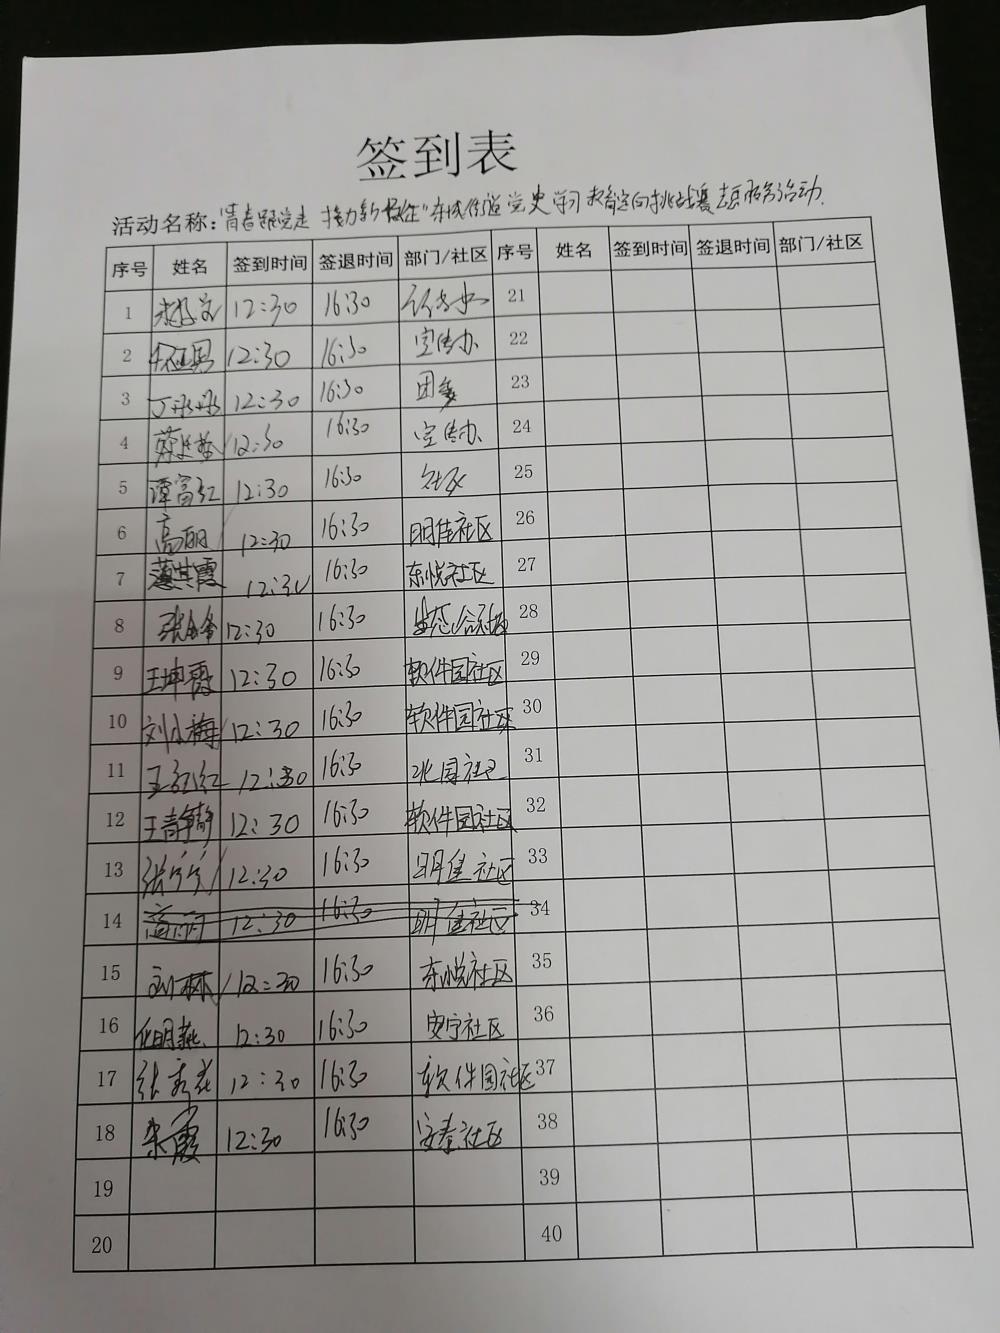 签到表
活动名称：“青春跟党走 接力新征程”东城街道党史学习教育定向挑战赛志愿服务活动
序号 姓名 签到时间 签退时间 部门/社区 序号 姓名 签到时间 签退时间 部门/社区
1 12:30 16:30 21
2 12:30 16:30 宣传办 22
3 丁彤彤 12:30 16:30 团委 23
4 12:30 16:30 宣传办 24
5 谭富红 12:30 16:30 社区 25
6 高丽 12:30 16:30 明佳社区 26
7 霞 12:30 16:30 东悦社区 27
8 张 12:30 16:30 28
9 王坤霞 12:30 16:30 软件园社区 29
10 刘小梅 12:30 16:30 软件园社区 30
11 王红红 12:30 16:30 社区 31
12 王静静 12:30 16:30 软件园社区 32
13 张 12:30 16:30 明佳社区 33
14 高丽 12:30 16:30 明佳社区 34
15 刘林 12:30 16:30 东悦社区 35
16 明燕 12:30 16:30 安宁社区 36
17 张秀花 12:30 16:30 软件园社区 37
18 朱霞 12:30 16:30 安泰社区 38
19 39
20 40